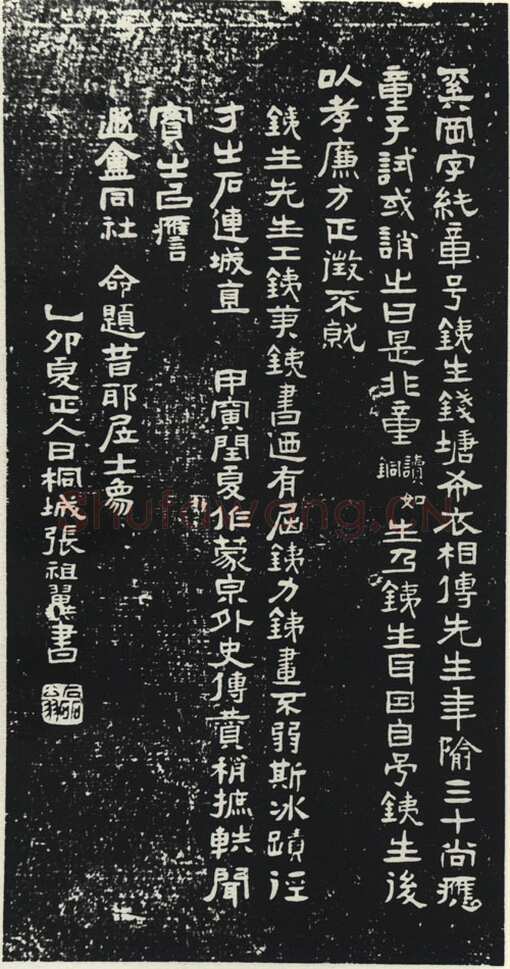 奚岡字純章号銕生錢塘布衣相傳先生年隃三十尚應
童子試或誚之曰是北童讀如銅生乃銕生耳因自号銕生後
以孝廉方正徵不就
銕生先生工銕筆銕書迺有屈銕力銕畫不弱斯冰蹟徑
寸之石連城直 甲寅閏夏作蒙泉外史傳贊稍摭軼聞
實之㠯譍
遯盦同社 命題昔耶居士象
乙卯夏正人日桐城張祖翼書
Shufawang.CN